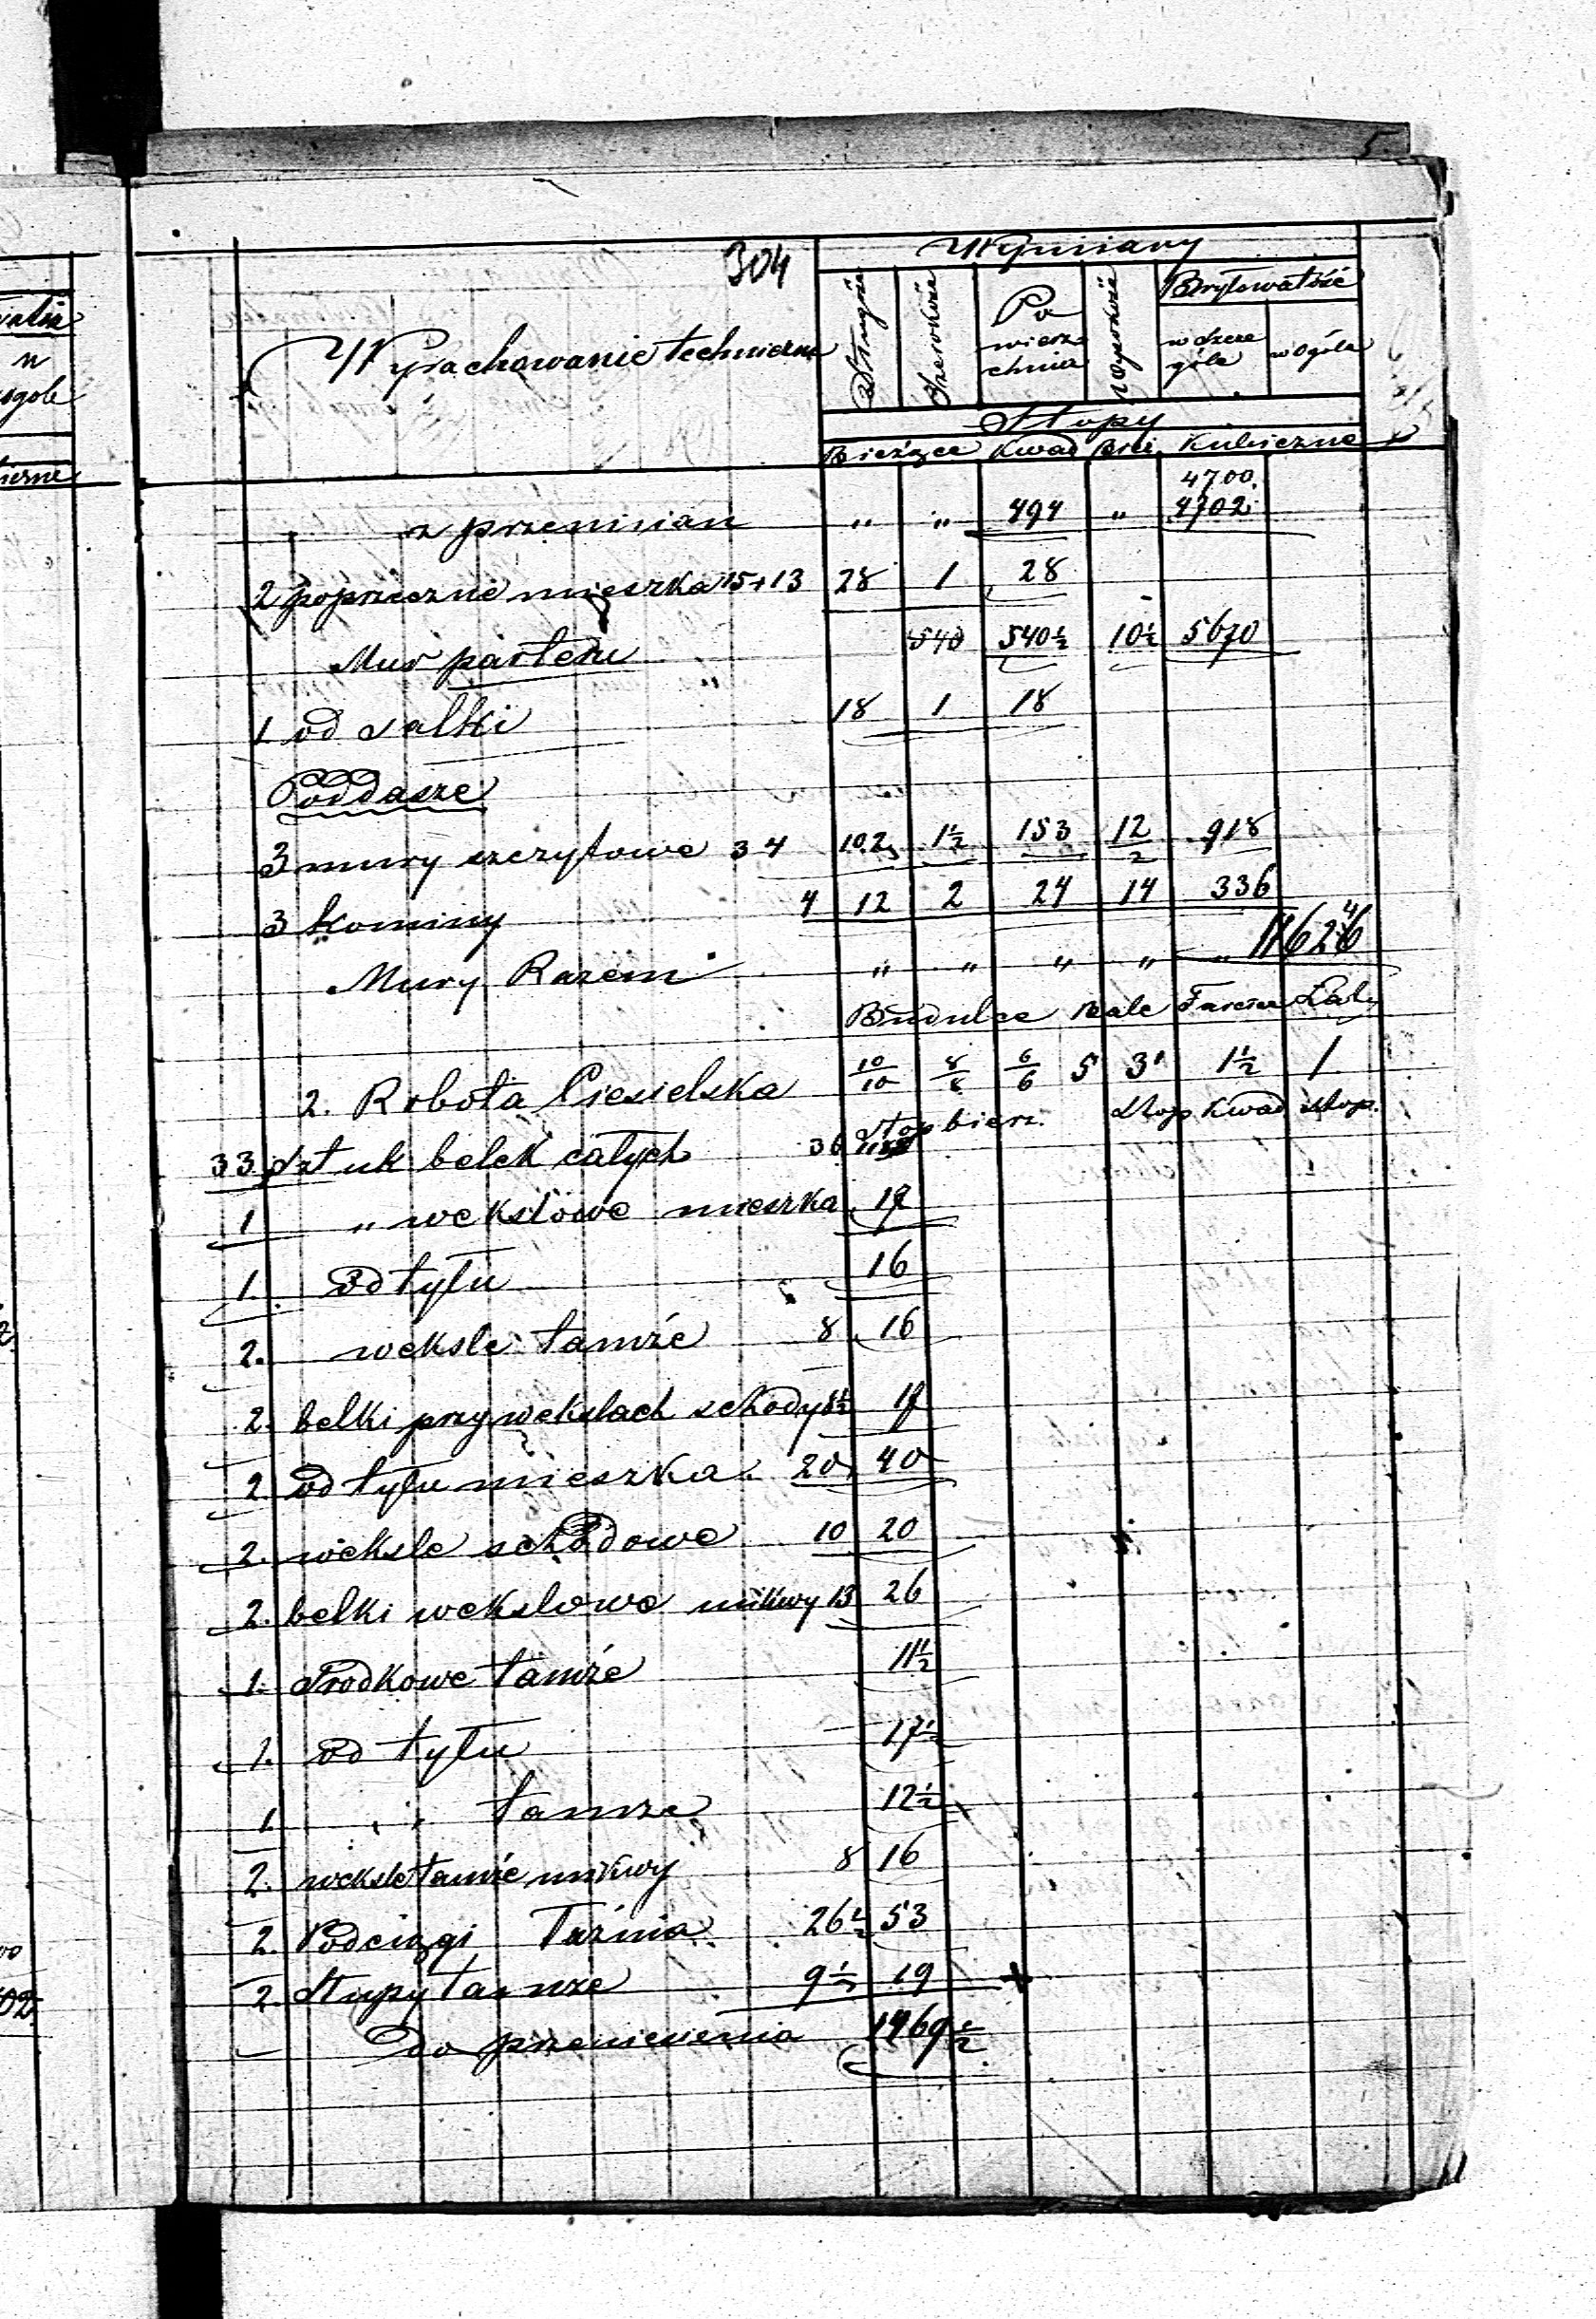 5
304
Wymiary
Wyrachowanie techniczne
Długość
Szerokość
Po
wierz
chnia
Wysokość
Bryłowatość
w szcze
góle
w Ogóle
Stopy
Bieżące Kwad Bież Kubiczne
4700.
z przeniesian " " 494 " 4702
2 poprzeczne mieszka 15+13 28 1 28
Mur parteru 540 540½ 10½ 5670
1 od salki 18 1 18
Poddasze
3 mury szczytowe 34 102 1½ 153 12/2 918
3 kominy 4 12 2 24 14 336
Mury Razem " " " " "
Budulce Bale Tarcice Łaty
2. Robota Ciesielska 10/10 8/8 6/6 5 3" 1½ 1
stop bież. stop Kwad stop.
33 sztuk belek całych 36
1 " wekslowe mieszka 17
1. od tyłu 16
2. weksle tamże 8 16
2. belki przy wekslach schody 8½ 17
2 od tyłu mieszka 20 40
2. weksle schodowe 10 20
2. belki wekslowe mikwy 13 26
1. środkowe tamże 11½
1. od tyłu 17½
1. " " tamże 12½
2. weksle tamże mikwy 8 16
2. Podciągi Taźnia 26½ 53
2. Słupy tamże 9½ 19
Do przeniesienia 1469½